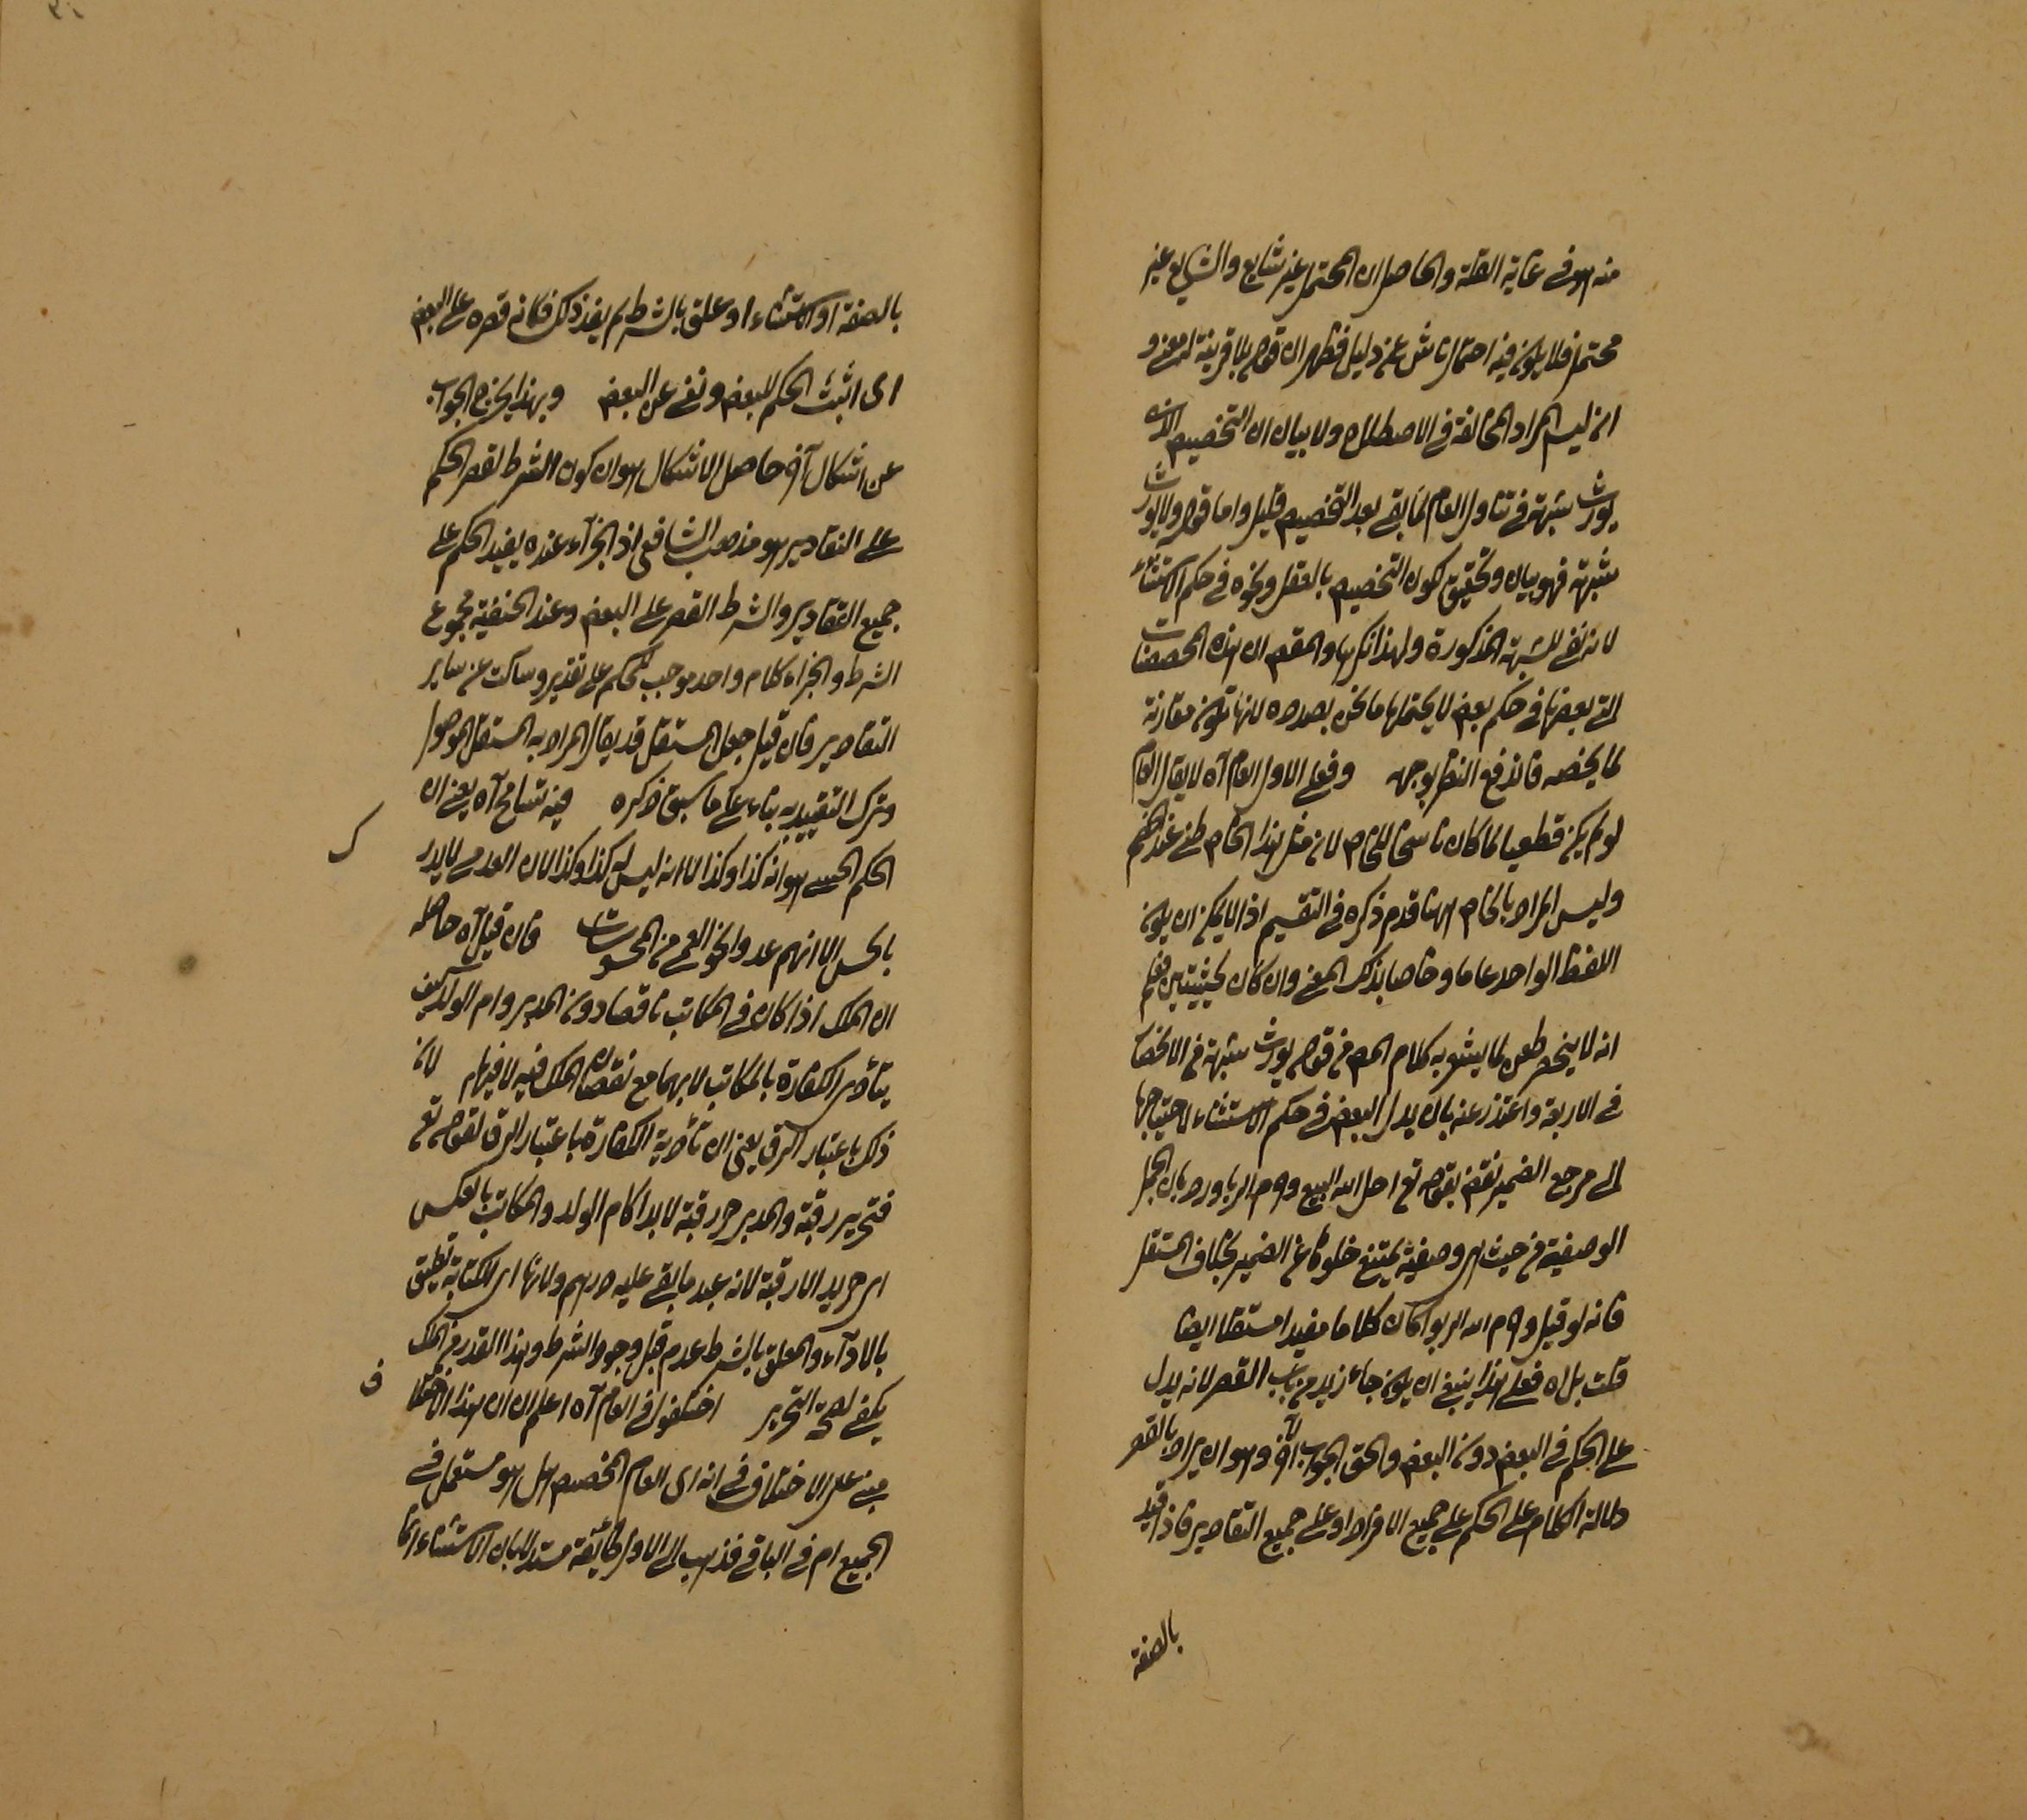 منه هو في غاية القلة والحاصل ان المحتمل غير شايع والشايع غير
محتمل فلا يكون فيه احتمال ناش عن دليل فظهر ان قوله بلا قرينة له معنى و
انه ليس المراد المخالفة في الاصطلاح ولا بيان ان التخصيص الذي
يورث شبهة في تناول العام لما بقي بعد التخصيص قليل واما قوله ولا يورث
شبهة فهو بيان وتحقيق لكون التخصيص بالعقل ونحوه في حكم الاستثناء
لانه نفي للشبهة المذكورة ولهذا نكرها والمقصود ان هذه المخصصات
التي بعضها في حكم بعض لا يحتملها ما نحن بصدده لانها تكون مقارنة
لما يخصه فاندفع النظر بوجهه وفعلى الاول العام آه لا يقال العام
لو لم يكن قطعيا لما كان ناسخا للخاص لانه مثل هذا الخاص ظني عند الخصم
وليس المراد بالخاص ههنا ما قدم ذكره في التقسيم اذ لا يمكن ان يكون
اللفظ الواحد عاما وخاصا بذلك المعنى وان كان بحيثيتين فعلم
انه لا ينحصر طعن لما يشعر به كلام المص في قوله يورث شبهة في الانحصار
في الاربعة واعتذر عنه بان بدل البعض في حكم الاستثناء لاحتياجها
الى مرجع الضمير نقض بقوله تع احل الله البيع وحرم الربا ورد بان الجمل
الوصفية من حيث هي وصفية يمتنع خلوها عن الضمير بخلاف المستقل
فانه لو قيل وحرم الله الربوا كان كلاما مفيدا مستقلا ايضا
قلت بل آه فعلى هذا ينبغي ان يكون جاء زيد من باب القصر لانه يدل
على الحكم في البعض دون البعض والحق الجواب الآخر وهو ان يراد بالقصر
دلالة الكلام على الحكم على جميع الافراد او على جميع التقادير فاذا قيد
بالصفة
بالصفة او الاستثناء او علق بالشرط لم يفد ذلك فكانه قصره على البعض
اى اثبت الحكم للبعض ونفى عن البعض وبهذا يخرج الجواب
عن اشكال آخر حاصل الاشكال هو ان كون الشرط لقصر الحكم
على التقادير هو مذهب الشافعي اذ الجزاء عنده يفيد الحكم على
جميع التقادير والشرط القصر على البعض وعند الحنفية مجموع
الشرط والجزاء كلام واحد موجب للحكم على تقدير وساكت عن ساير
التقادير فان قيل جعل المستقل قد يقال المراد به المستقل الموصول
وترك التقييد به بناء على ما سبق ذكره فيه تسامح آه يعني ان
الحكم الحسي هو انه كذا وكذا لا انه ليس له كذا وكذا لان العدمي لا يدرك
بالحس الا انهم عدوا نحو العمى من المحسوسات فان قيل آه حاصله
ان الملك اذا كان في المكاتب ناقصا دون المدبر وام الولد كيف
يتأدى الكفارة بالمكاتب لا بهما مع نقصان الملك فيه لا فيهما لان
ذلك باعتبار الرق يعني ان تأدية الكفارة باعتبار الرق لقوله تع
فتحرير رقبة والمدبر حر رقبة لا يدا كام الولد والمكاتب بالعكس
اى حر يدا لا رقبة لانه عبد ما بقي عليه درهم ولانها اى الكتابة تطيق
بالاداء والمعلق بالشرط عدم قبل وجود الشرط وهذا القدر من الملك
يكفي لصحة التحرير اختلفوا في العام آه اعلم ان هذا الاختلاف
مبني على الاختلاف في انه اى العام المخصص هل هو مستعمل في
الجميع ام في الباقي فذهب الى الاول طائفة مستدلا بان الاستثناء انما